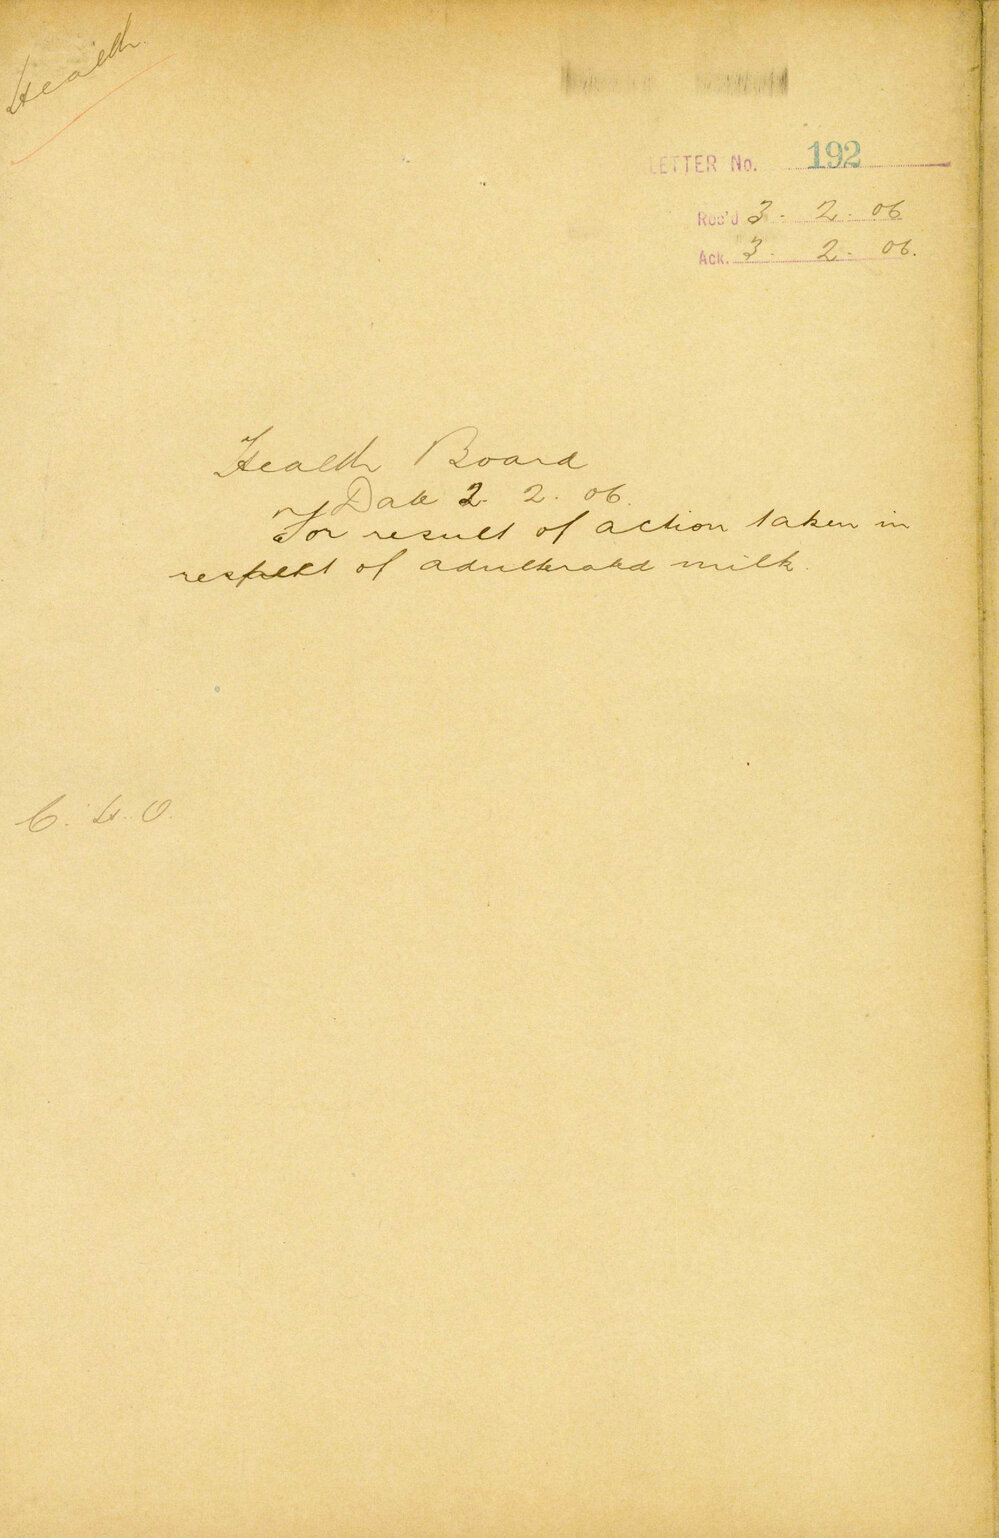 Health
LETTER No. 192
Rec'd 3. 2. 06
Ack. 3. 2. 06.
Health Board
Date 2. 2. 06.
For result of action taken in
respect of adulterated milk.
C. H. O.